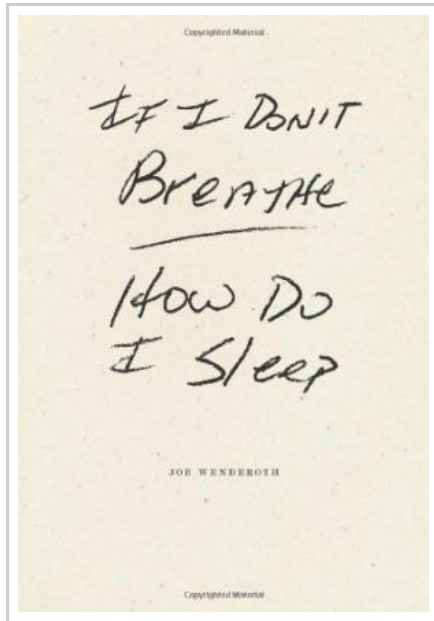 Copyrighted Material
IF I DON'T
BreATHe
How Do
I Sleep
JOE WENDEROTH
Copyrighted Material